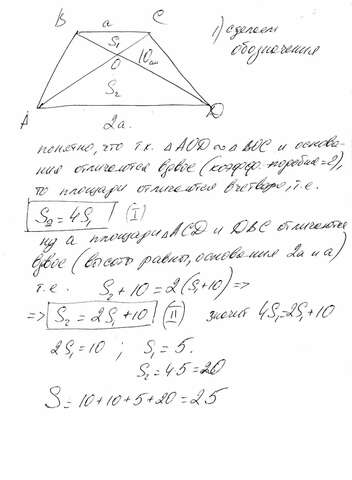 B a C
1) сделаем
обозначения
S₁
O 10
S₂
A D
2a.
понятно, что т.к. △AOD ∾ △BOC и основа-
ния отличаются вдвое (коэфф. подобия=2),
то площади отличаются вчетверо, т.е.
S₂ = 4S₁ (I)
ну а площади △ACD и DBC отличаются
вдвое (высоты равны, основания 2a и a)
т.е. S₂ + 10 = 2(S₁+10) =>
=> S₂ = 2S₁ +10 (II) значит 4S₁=2S₁+10
2S₁=10 ; S₁ = 5.
S₂ = 4·5 = 20
S = 10+10+5+20 = 25